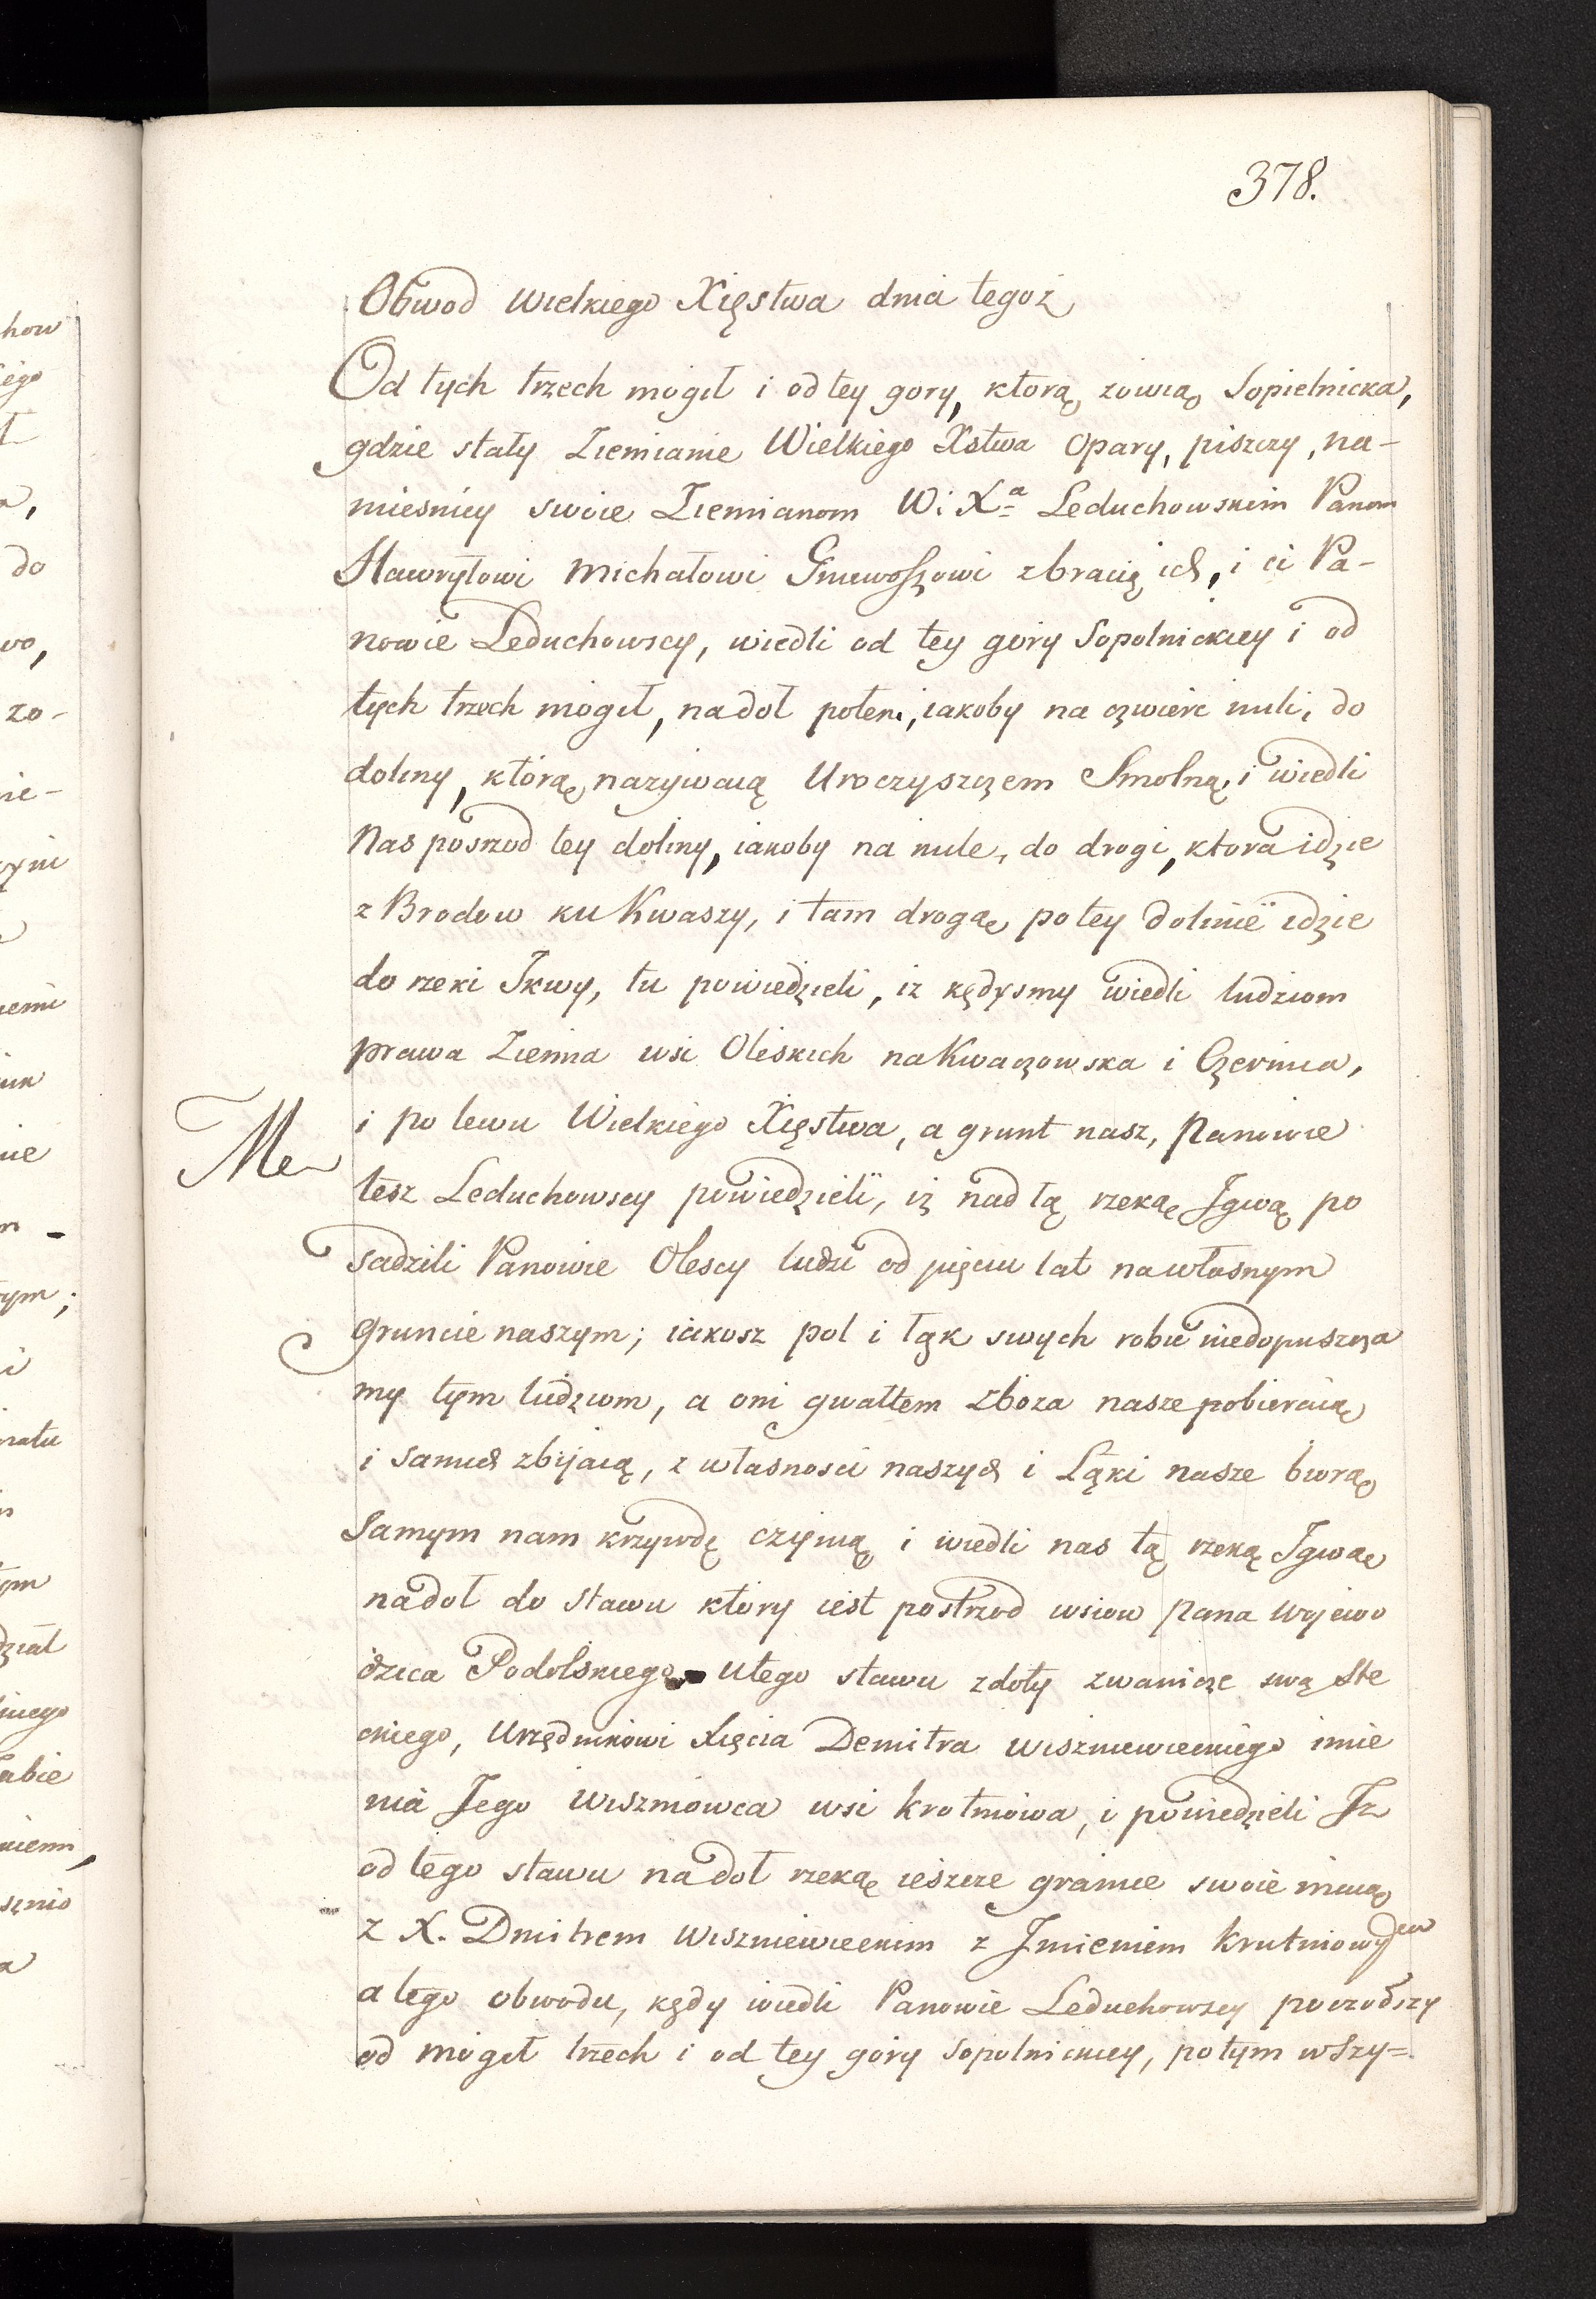 378.
Obwod Wielkiego Xięstwa dnia tegoż
Od tych trzech mogił i od tey gory, ktorą zowią Sopielnicka,
gdzie stały Ziemianie Wielkiego Xstwa Opary, piszczy, na-
miesnicy swoie Ziemianom W: Xa Leduchowskim Panom
Hawryłowi Michałowi Gniewoszowi z bracią ich, i ci Pa-
nowie Leduchowscy, wiedli od tey gory Sopolnickiey i od
tych trzech mogił, na doł polem, iakoby na czwierc mili, do
doliny, ktorą nazywaią Uroczyszczem Smolną, i wiedli
Nas posrzod tey doliny, iakoby na mile, do drogi, ktora idzie
z Brodow ku Kwaszy, i tam drogą po tey dolinie idzie
do rzeki Ikwy, tu powiedzieli, iz kędysmy wiedli ludziom
prawa Ziemia wsi Oleskich na Kwaczowska i Czernica,
i po lewu Wielkiego Xięstwa, a grunt nasz, Panowie
Me
tesz Leduchowscy powiedzieli, iż nad tą rzeką Igwą po
sadzili Panowie Olescy ludzi od pięciu lat na własnym
gruncie naszym; iakosz pol i łąk swych robić niedopuszcza
my tym ludziom, a oni gwałtem zboza nasze pobieraią
i samich zbijaią, z własnosci naszych i Łąki nasze biorą
Samym nam krzywdę czynią i wiedli nas tą rzeką Igwą
na doł do stawu ktory iest postrzod wsiow Pana Wojewo
dzica Podolskiego utego stawu zdoły zwanicze swą Ste
ckiego, Urzędnikowi Xięcia Demitra Wiszniewieckiego imie
nia Jego Wiszniowca wsi Krotniowa, i powiedzieli Iz
od tego stawu na doł rzeką ieszcze granice swoie maią
z X. Dmitrem Wiszniewieckim z Imieniem Krutniowym
a tego obwodu, kędy wiedli Panowie Leduchowscy poczowszy
od mogił trzech i od tey gory Sopolnickiey, potym wszy=